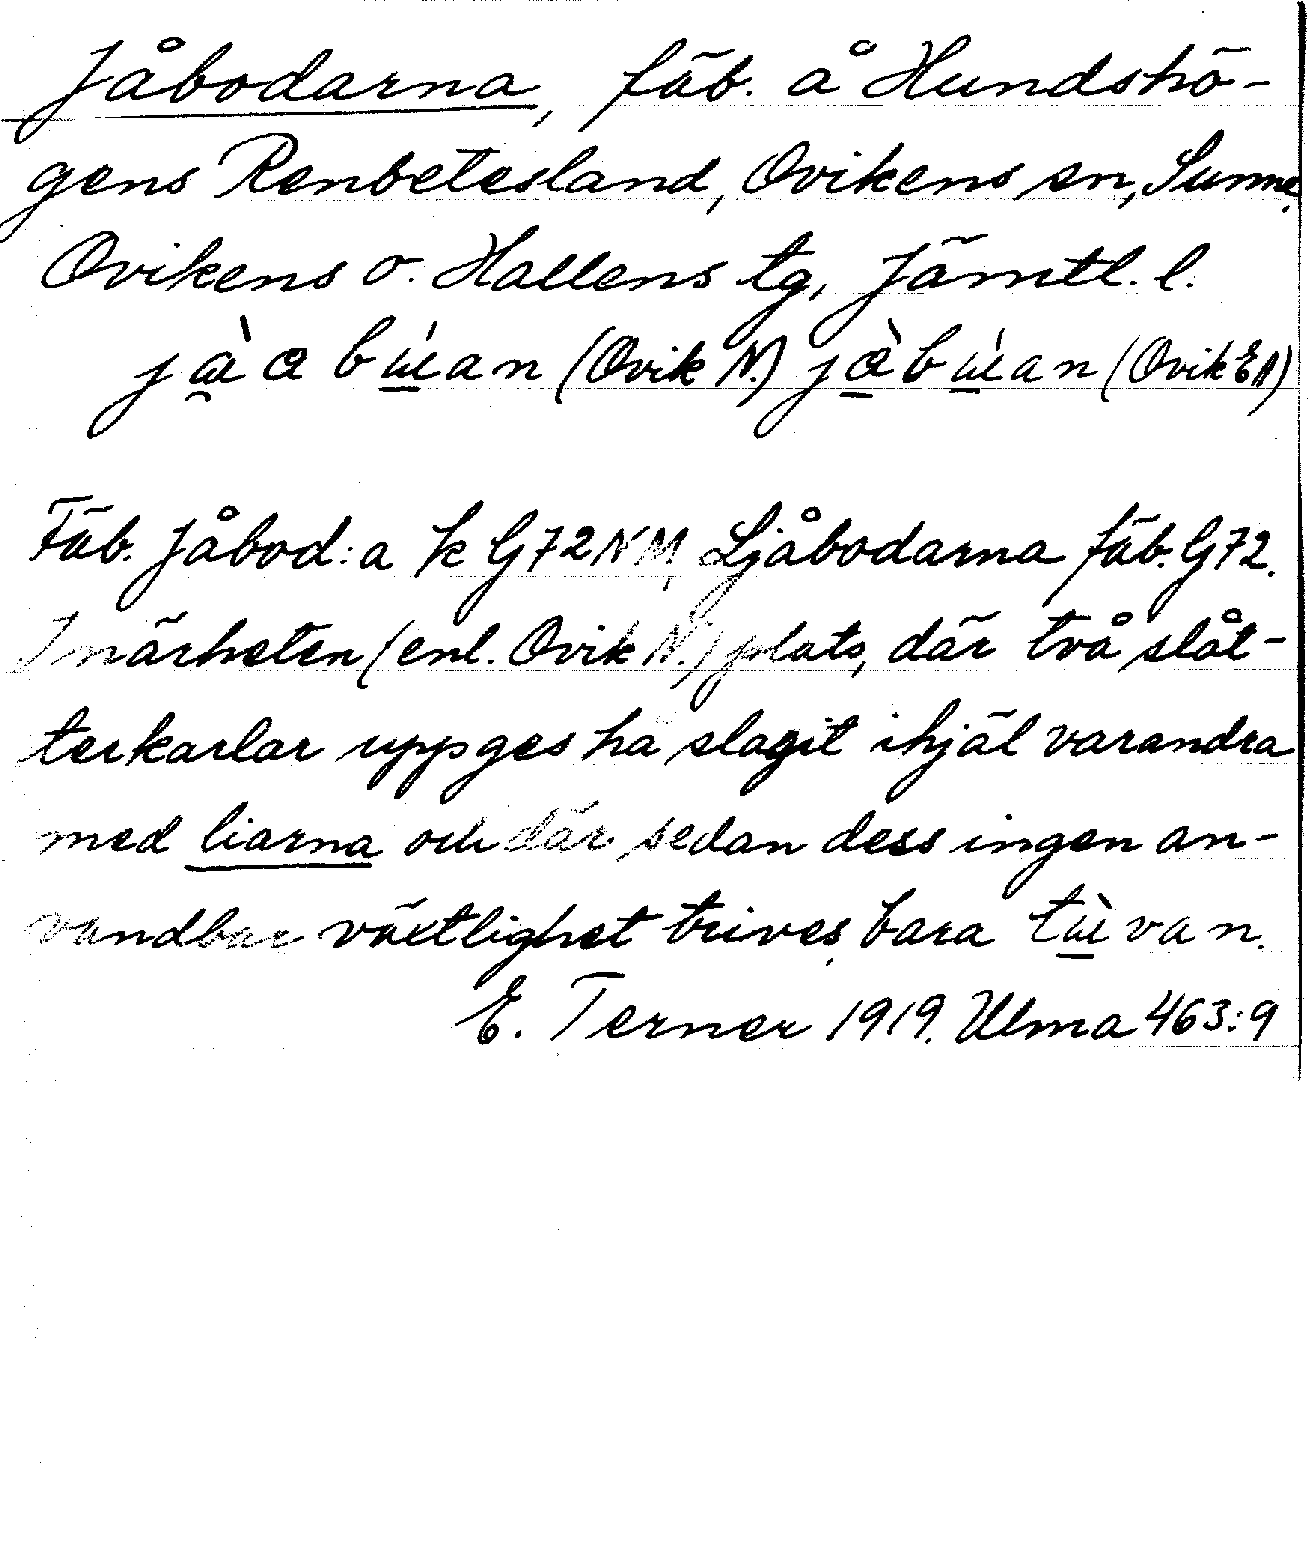 Jåbodarna, fäb. å Hundshö-
gens Renbetesland, Ovikens sn, Sunne,
Ovikens o. Hallens tg, Jämtl. l.
(Ovik N.) (Ovik EA)
Fäb. Jåbod:a k G72NM, Ljåbodarna fäb. G72.
I närheten (enl. Ovik N.) plats, där två slåt-
terkarlar uppges ha slagit ihjäl varandra
med liarna och där sedan dess ingen an-
vändbar växtlighet trives, bara
E. Terner 1919. Ulma 463:9